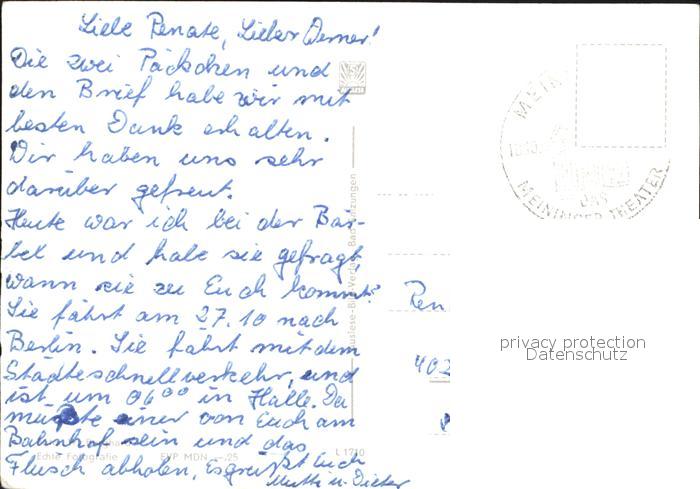 Liebe Renate, Lieber Werner!
Die zwei Päckchen und
den Brief habe wir mit
besten Dank erhalten.
Wir haben uns sehr
darüber gefreut.
Heute war ich bei der Bär-
bel und habe sie gefragt,
wann sie zu Euch kommt?
Sie fährt am 27.10 nach
Berlin. Sie fährt mit dem
Städteschnellverkehr, und
ist um 06⁰⁰ in Halle. Da
müßte einer von Euch am
Bahnhof sein und das
Echte Fotografie EVP MDN -.25 L 1710
Fleisch abholen, Es grüßt Euch
Mutti u. Dieter
Auslese-Bild-Verlag Bad Salzungen
MEIN
DAS
MEININGER THEATER
Ren
402
privacy protection
Datenschutz